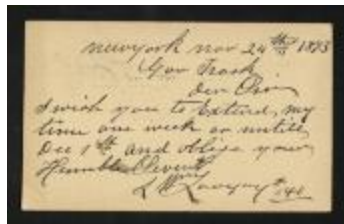 newyork nov 24th 1885
Gov Trask
Dear Sir
I wish you to Extend, my
time one week or untill
Dec 1st and oblige your
Humble Servent
140